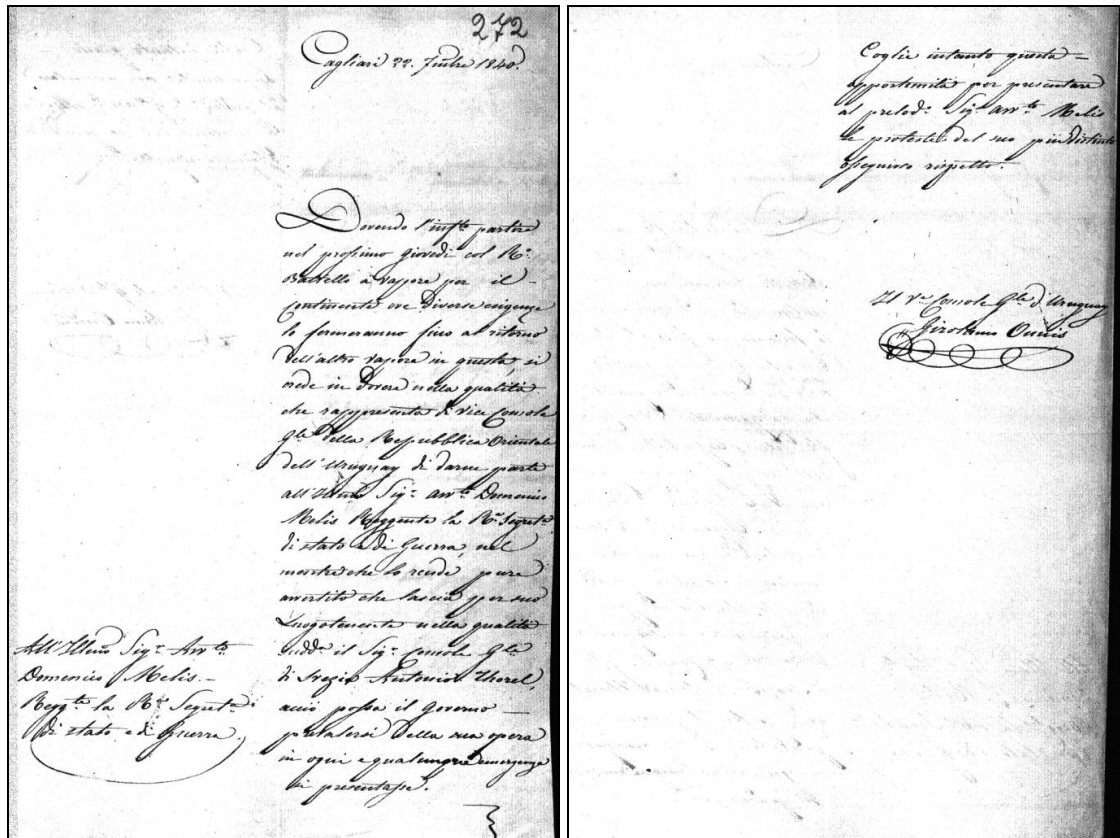 272
Cagliari 22. Julie 1840.
Dovendo l'insto partire
nel prossimo giovedì col Ro.
Battello a vapore per il
Continente ove diverse esigenze
lo fermeranno fino al ritorno
dell'altro vapore in questa, si
vede in dovere nella qualità
che rappresenta di Vice Console
Gle della Repubblica Orientale
dell'Uruguay di darne parte
all'Illmo Sigr. Avvto Domenico
Melis Reggente la Ra. Segreta.
di stato e di Guerra, nel
mentre che lo rende pure
avvertito che lascia per suo
Luogotenente nella qualità
sudda il Sigr. Console Gle
di Svezia Antonio Thorel,
acciò possa il Governo
prevalersi della sua opera
in ogni e qualunque emergenza
si presentasse.
All'Illmo Sigr. Avvto
Domenico Melis.
Reggte la Ra. Segreta.
di stato e di Guerra.
Coglie intanto questa
opportunità per presentare
al prelodo. Sigr. Avvto Melis
le proteste del suo più distinto
ossequioso rispetto.
Il Ve. Console Gle d'Uruguay
Girolamo